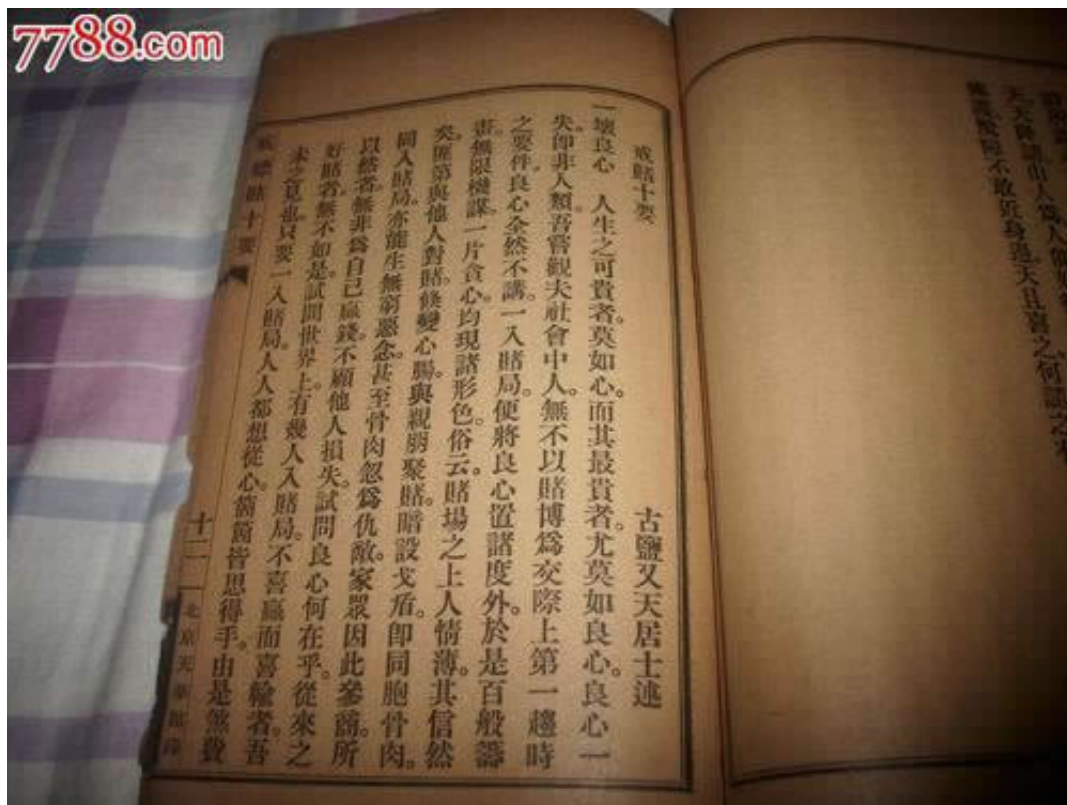 7788.com
不敢近身邊。天且喜之。何謂之
戒賭十要
古鹽又天居士述
一壞良心　人生之可貴者。莫如心。而其最貴者。尤莫如良心。良心一
失。卽非人類。吾嘗觀夫社會中人。無不以賭博爲交際上第一趨時
之要件。良心全然不講。一入賭局。便將良心置諸度外。於是百般籌
畫。無限機謀。一片貪心。均現諸形色。俗云。賭場之上人情薄。其信然
矣。匪第與他人對賭。倏變心腸。與親朋聚賭。暗設戈盾。卽同胞骨肉。
同入賭局。亦能生無窮惡念。甚至骨肉忽爲仇敵。家眾因此參商。所
以然者。無非爲自己贏錢。不顧他人損失。試問良心何在乎。從來之
好賭者。無不如是。試問世界上。有幾人入賭局。不喜贏而喜輸者。吾
未之見也。只要一入賭局。人人都想從心。箇箇皆思得手。由是煞費
賭十要
十二
北京天華館